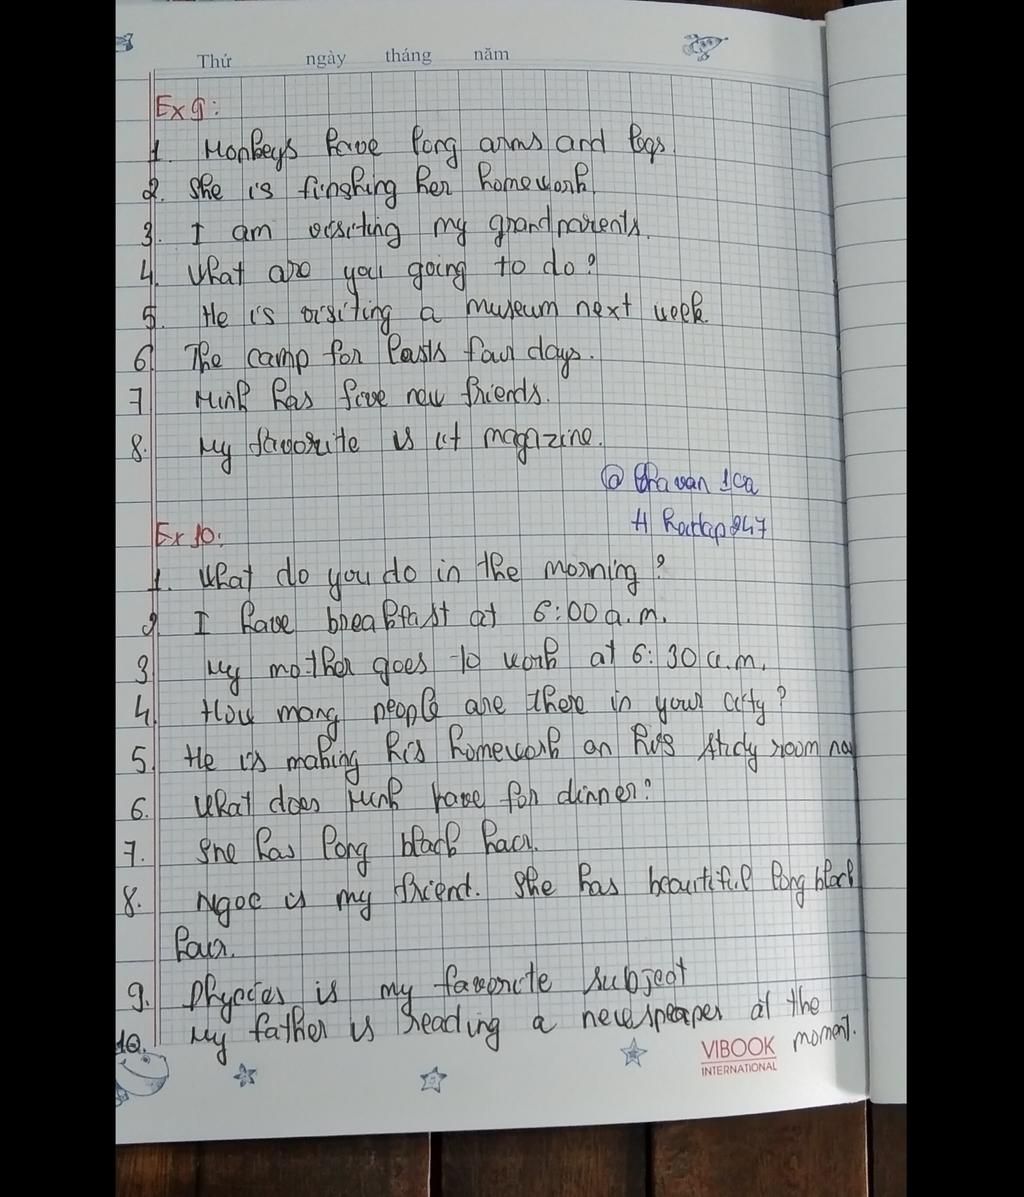 Thứ ngày tháng năm
Ex 9:
1. Monkeys have long arms and legs.
2. She is finshing her homework.
3. I am visiting my grandparents.
4. What are you going to do?
5. He is visiting a museum next week.
6. The camp for lasts four days.
7 Minh has five new friends.
8. My favorite is it magazine.
@
#
Ex 10:
1. What do you do in the morning?
2 I have breakfast at 6:00 a.m.
3 My mother goes to work at 6:30 a.m.
4. How many people are there in your city?
5. He is making his homework on his study room now
6. What does Minh have for dinner?
7. She has long black hair.
8. Ngoc is my friend. She has beautiful long black
hair.
9. Physcics is my favorite subject
10. My father is reading a newspeaper at the
moment.
VIBOOK
INTERNATIONAL